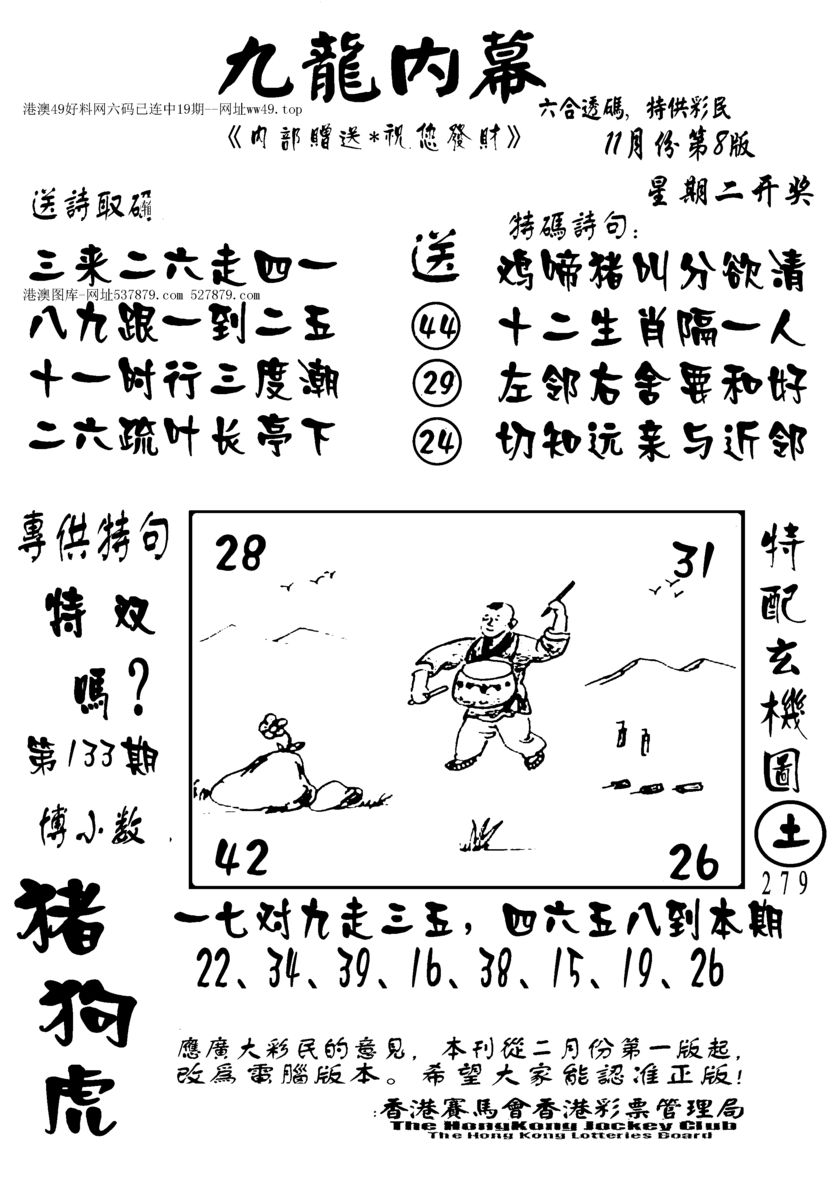 九龍内幕
港澳49好料网六码已连中19期--网址ww49.top
六合透碼，特供彩民
《内部贈送*祝您發財》
11月份第8版
星期二开奖
送詩取碼
三来二六走四一
港澳图库-网址537879.com 527879.com
八九跟一到二五
十一时行三度潮
二六疏叶长亭下
送
44
29
24
特碼詩句：
鸡啼猪叫分欲清
十二生肖隔一人
左邻右舍要和好
切知远亲与近邻
專供特句
特双
嗎？
第133期
博小数
猪
狗
虎
28
31
42
26
特配玄機圖
土
279
一七对九走三五，四六五八到本期
22、34、39、16、38、15、19、26
應廣大彩民的意見，本刊從二月份第一版起，
改爲電腦版本。希望大家能認准正版！
:香港賽馬會香港彩票管理局
The HongKong Jockey Club
The Hong Kong Lotteries Board